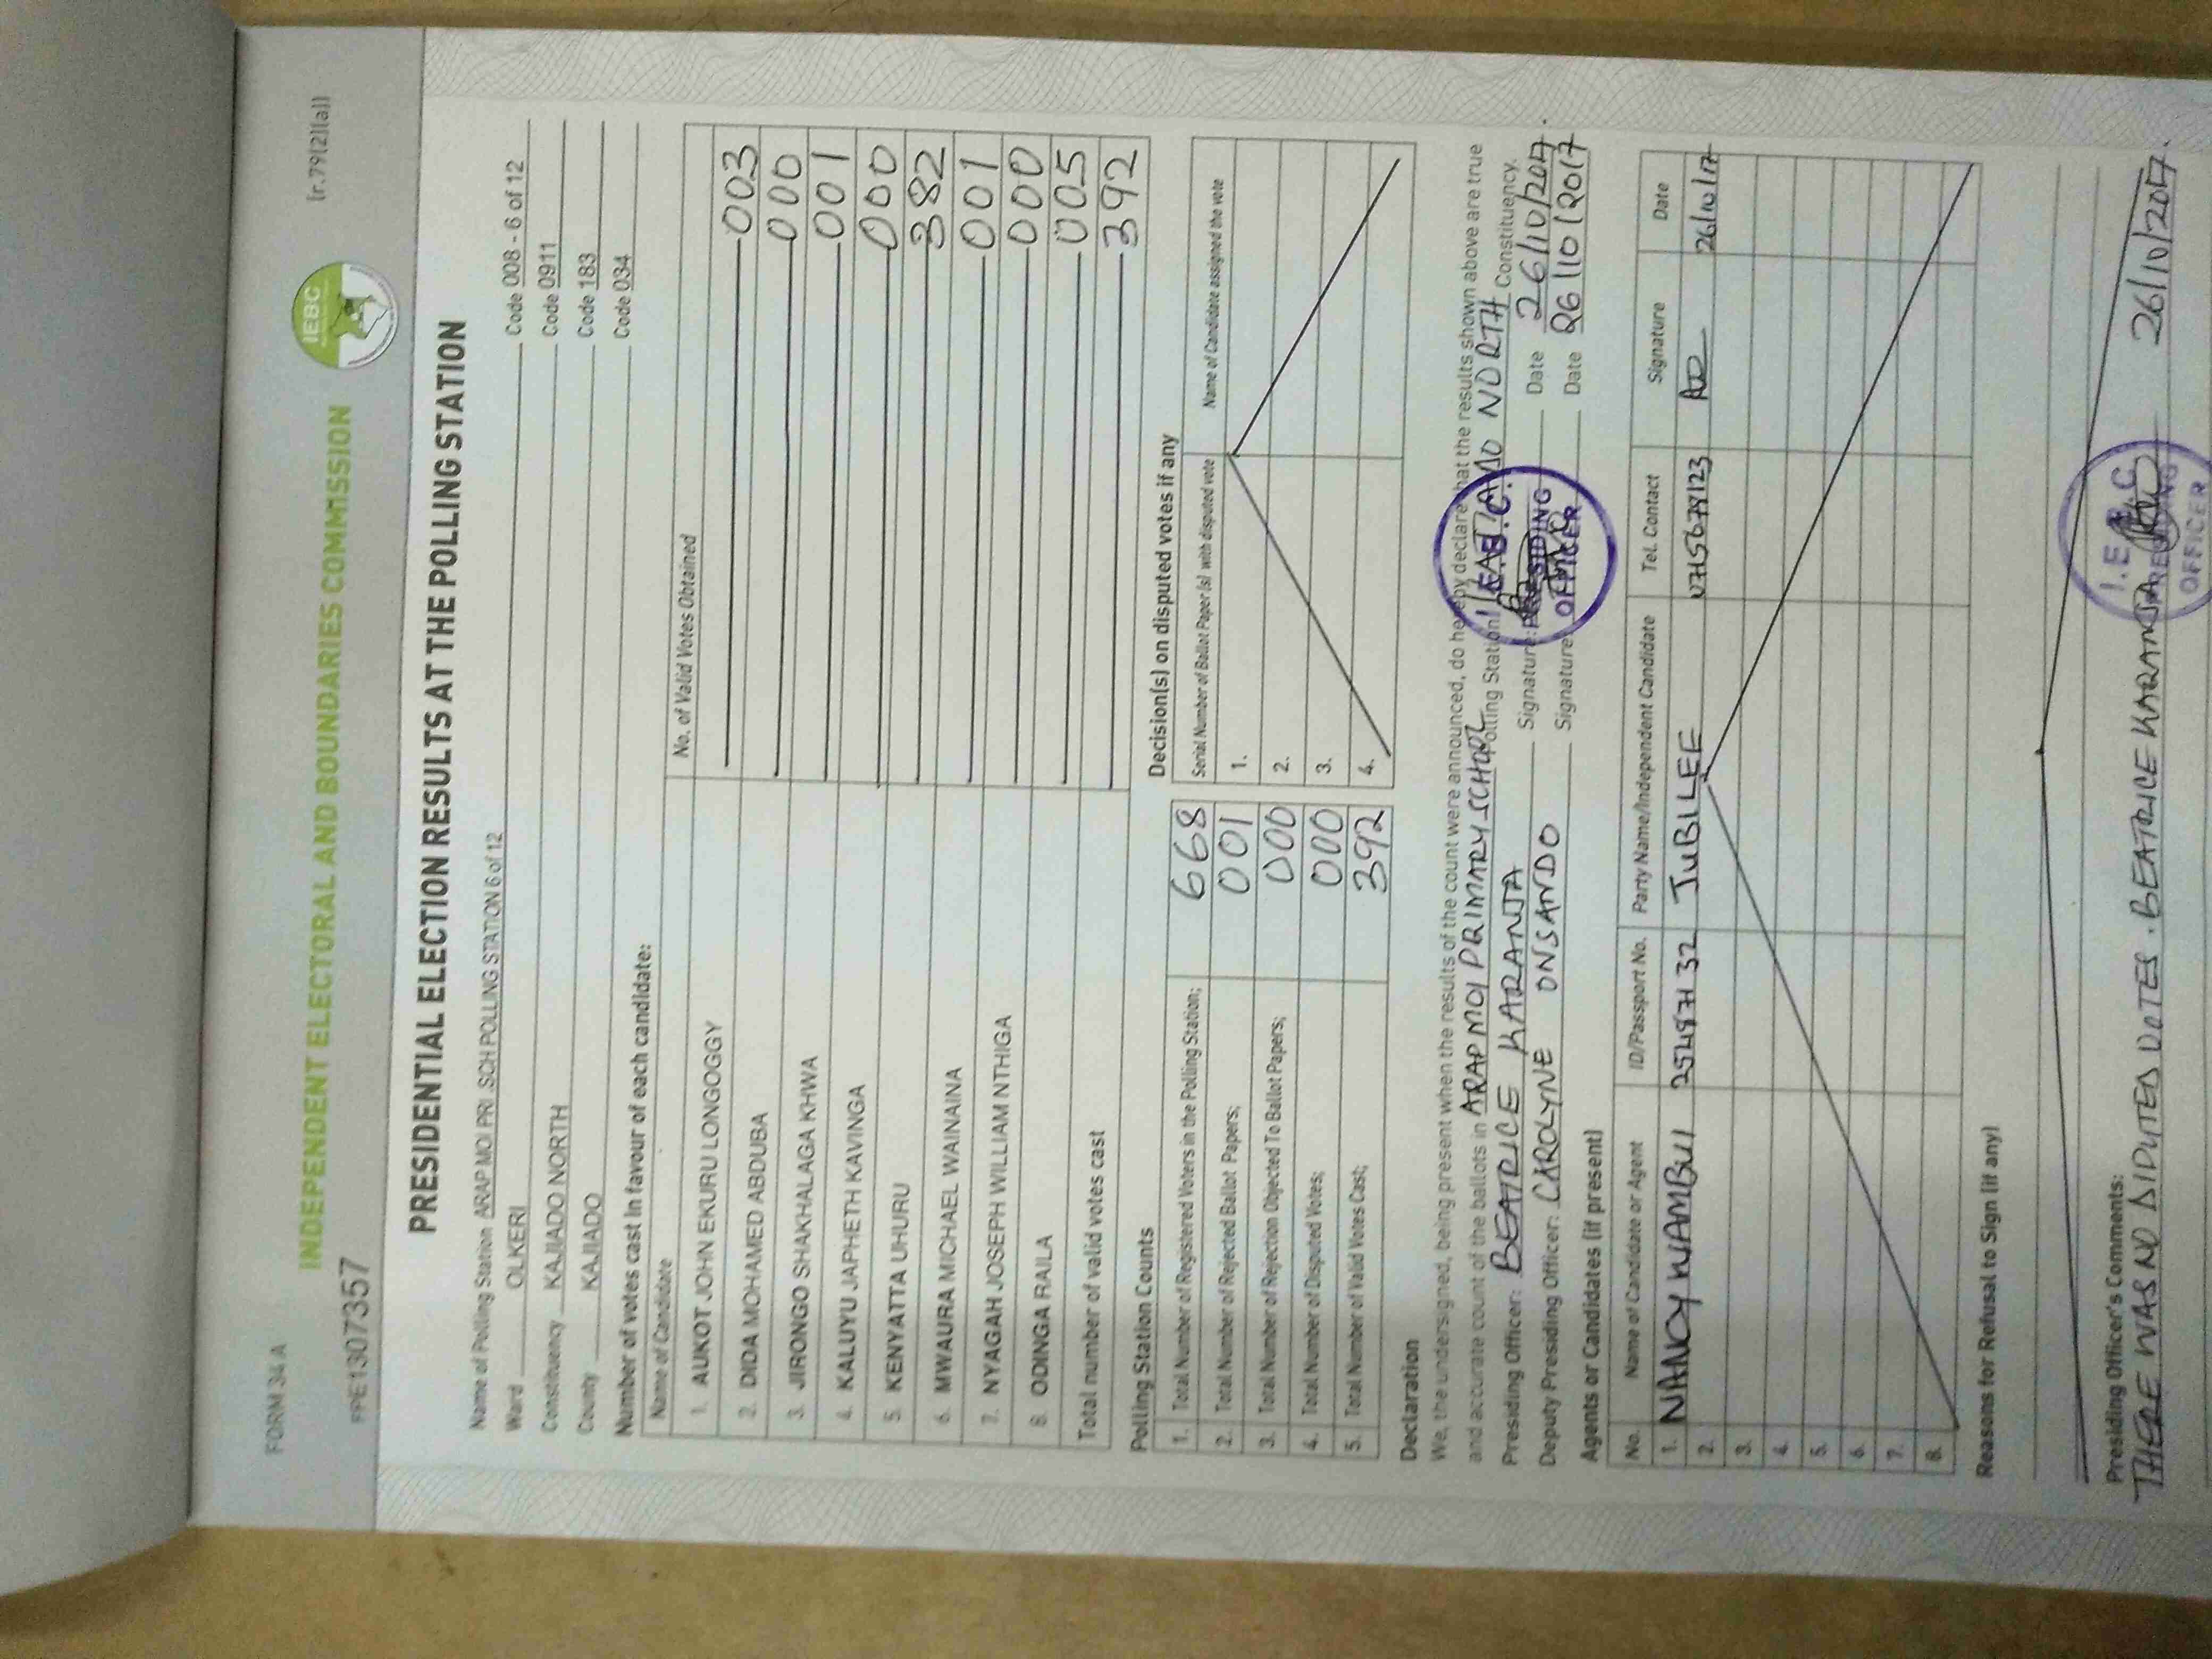 FORM 34 A
(r.79(2)(a))
INDEPENDENT ELECTORAL AND BOUNDARIES COMMISSION
IEBC
FPE1307357
PRESIDENTIAL ELECTION RESULTS AT THE POLLING STATION
Name of Polling Station ARAP MOI PRI SCH POLLING STATION 6 of 12 Code 008 - 6 of 12
Ward OLKERI Code 0911
Constituency KAJIADO NORTH Code 183
County KAJIADO Code 034
Number of votes cast in favour of each candidate:
Name of Candidate No. of Valid Votes Obtained
1. AUKOT JOHN EKURU LONGOGGY 003
2. DIDA MOHAMED ABDUBA 000
3. JIRONGO SHAKHALAGA KHWA 001
4. KALUYU JAPHETH KAVINGA 000
5. KENYATTA UHURU 382
6. MWAURA MICHAEL WAINAINA 001
7. NYAGAH JOSEPH WILLIAM NTHIGA 000
8. ODINGA RAILA 005
Total number of valid votes cast 392
Polling Station Counts
1. Total Number of Registered Voters in the Polling Station; 668
2. Total Number of Rejected Ballot Papers; 001
3. Total Number of Rejection Objected To Ballot Papers; 000
4. Total Number of Disputed Votes; 000
5. Total Number of Valid Votes Cast; 392
Decision(s) on disputed votes if any
Serial Number of Ballot Paper (s) with disputed vote Name of Candidate assigned the vote
1.
2.
3.
4.
Declaration
We, the undersigned, being present when the results of the count were announced, do hereby declare that the results shown above are true
and accurate count of the ballots in ARAP MOI PRIMARY SCHOOL Polling Station, KAJIADO NORTH Constituency.
Presiding Officer: BEATRICE KARANJA Signature: Date 26/10/2017.
Deputy Presiding Officer: CAROLYNE ONSANDO Signature: Date 26/10/2017
I.E.B.C.
PRESIDING
OFFICER
Agents or Candidates (if present)
No. Name of Candidate or Agent ID/Passport No. Party Name/Independent Candidate Tel. Contact Signature Date
1. NANCY WAMBUI 25487132 JUBILEE 0715679123 26/10/17
2.
3.
4.
5.
6.
7.
8.
Reasons for Refusal to Sign (if any)
Presiding Officer's Comments:
THERE WAS NO DIPUTED VOTES. BEATRICE KARANJA 26/10/2017.
I.E.B.C
PRESIDING
OFFICER